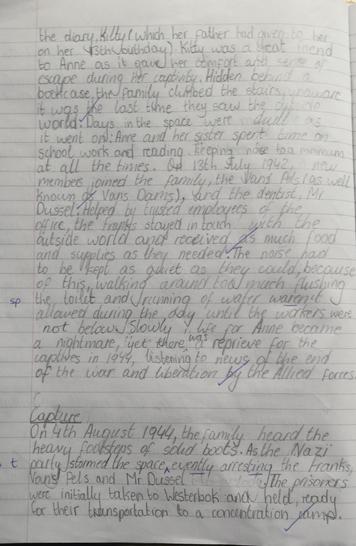 the diary. Kitty (which her father had given to her
on her 13th birthday) Kitty was a great friend
to Anne as it gave her comfort and sense of
escape during her captivity. Hidden behind a
bookcase, the family climbed the stairs, unaware
it was the last time they saw the outside
world. Days in the space were dull as
it went on. Anne and her sister spent time on
school work and reading. Keeping noise to a minimum
at all the times. On 13th July 1942, new
members joined the family, the Vans Pels (as well
known as Vans Dams), and the dentist, Mr
Dussel. Helped by trusted employees of the
office, the Franks stayed in touch with the
outside world and received as much food
and supplies as they needed. The noise had
to be kept as quiet as they could, because
of this, walking around too much, flushing
sp the toilet and running of water waren't
allowed during the day until the workers were
not below. Slowly, life for Anne became
a nightmare, yet there was a reprieve for the
captives in 1944, listening to news of the end
of the war and liberation by the Allied forces.
Capture
On 4th August 1944, the family heard the
heavy footsteps of solid boots. As the Nazi
t party stormed the space, evently arresting the Franks,
Vans Pels and Mr Dussel The prisoners
were initially taken to Westerbok and held, ready
for their transportation to a concentration camp.